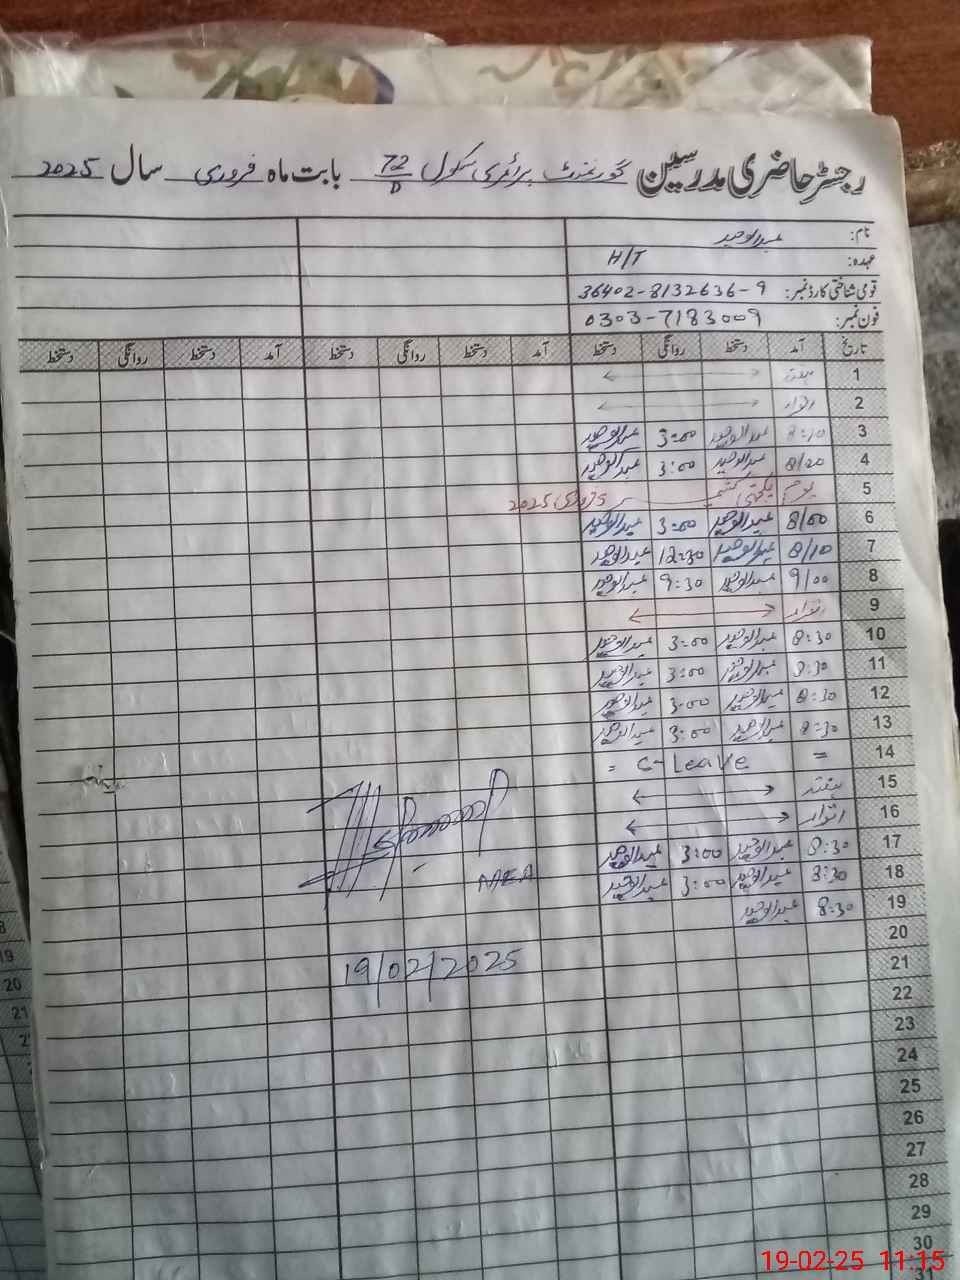 رجسٹر حاضری مدرسین گورنمنٹ پرائمری سکول 72/D بابت ماہ فروری سال 2025
نام: عبدالوحید
عہدہ: H/T
قومی شناختی کارڈ نمبر: 36402-8132636-9
فون نمبر: 0303-7183009
تاریخ آمد دستخط روانگی دستخط آمد دستخط روانگی دستخط آمد دستخط روانگی دستخط
1 ہفتہ
2 اتوار
3 8:20 عبدالوحید 3:00 عبدالوحید
4 8/20 عبدالوحید 3:00 عبدالوحید
5 یوم یکجہتی کشمیر 5 فروری 2025
6 8/00 عبدالوحید 3:00 عبدالوحید
7 8/10 عبدالوحید 12:30 عبدالوحید
8 9/00 عبدالوحید 9:30 عبدالوحید
9 اتوار
10 8:30 عبدالوحید 3:00 عبدالوحید
11 8:30 عبدالوحید 3:00 عبدالوحید
12 8:30 عبدالوحید 3:00 عبدالوحید
13 8:30 عبدالوحید 3:00 عبدالوحید
14 = C-Leave =
15 ہفتہ
16 اتوار
17 8:30 عبدالوحید 3:00 عبدالوحید
18 8:30 عبدالوحید 3:00 عبدالوحید
MEA
19 8:30 عبدالوحید
20
21
19/02/2025
22
23
24
25
26
27
28
29
30
31
19-02-25 11:15